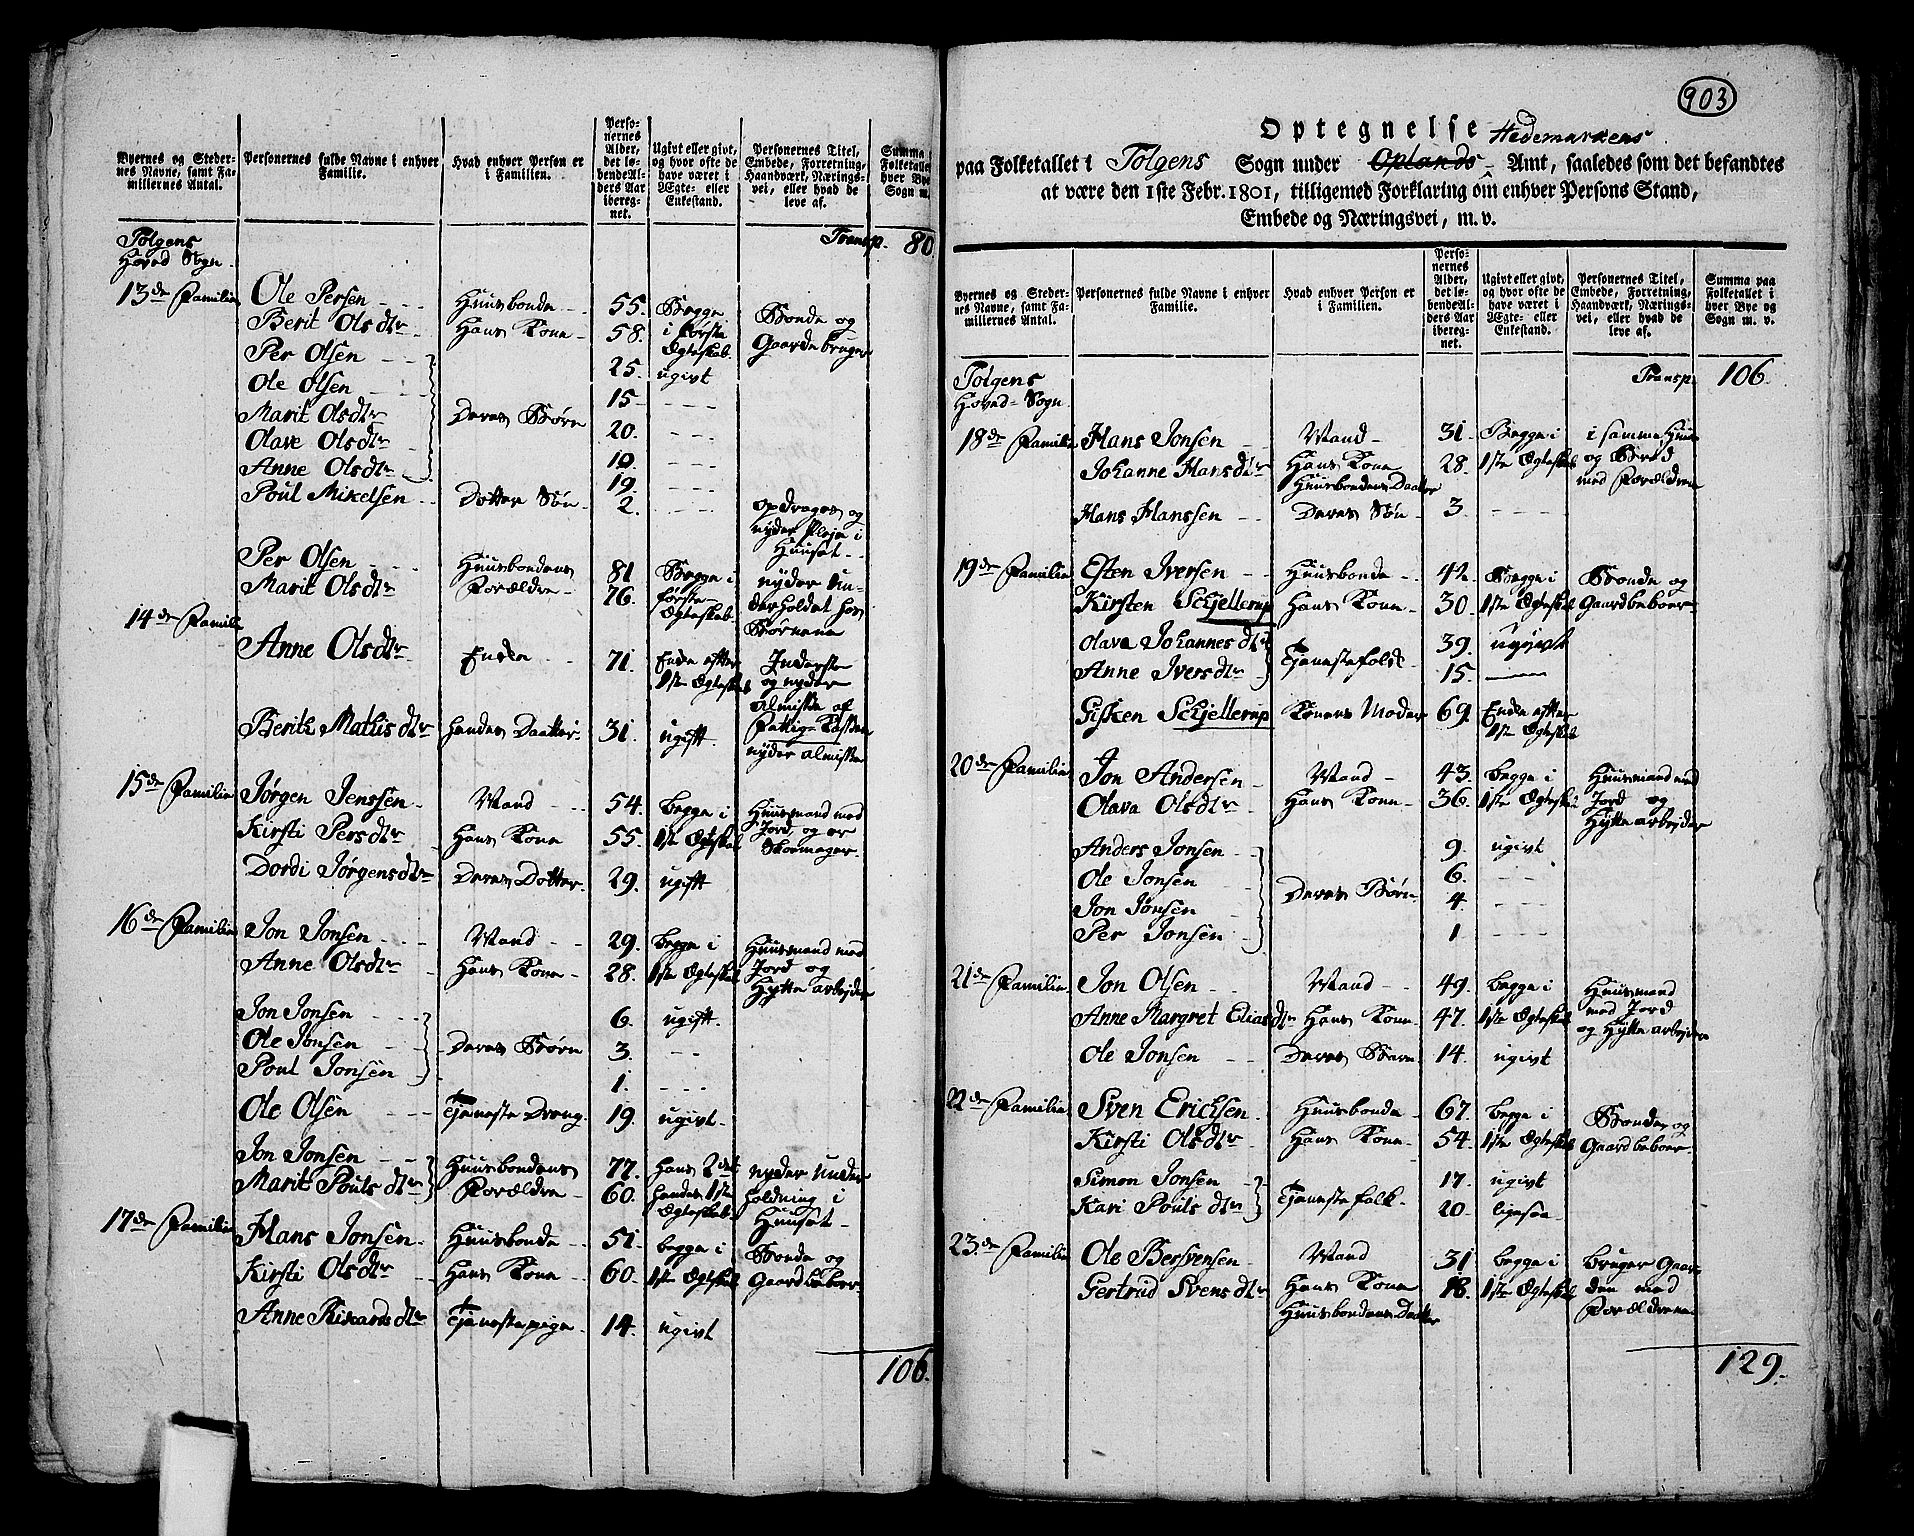 Byernes og Steder-
nes Navne, samt Fa-
miliernes Antal.
Personernes fulde Navne i enhver
Familie.
Hvad enhver Person er
i Familien.
Perso-
nernes
Alder,
det lø-
bende Al-
ders Aar
ibereg-
net.
Ugivt eller givt,
og hvor ofte de
have været i
Ægte- eller
Enkestand.
Personernes Titel,
Embede, Forretning,
Haandværk, Nærings-
vei, eller hvad de
leve af.
Summa
Folketallet
hver Bye
Sogn m.
Tolgens
Hoved Sogn.
Transp. 80
13de Familie Ole Persen Huusbonde 55. Begge Bonde og
Berit Olsdtr Hans Kone 58. i første Gaardebruger
Per Olsen 25. Ægteskab. ugivt
Ole Olsen 15
Marit Olsdtr Deres Børn 20.
Olave Olsdtr 10.
Anne Olsdtr 19
Poul Mikelsen Dotter Søn 2. opdrages og
nyder Pleje i
Huuset
Per Olsen Huusbondens 81 Begge i nyder Un-
Marit Olsdtr Forældre 76. første Ægteskab. derholdet hos
Børnene
14de Famili
Anne Olsdtr Enke 71. Enke efter Inderste
1ste Ægteskab og nyder
almisse af
Berith Mathis dtr hendes Daatter 31. ugift. Fattig-Kassen
nyder almisse
15de Familie Jørgen Jenssen Mand 54. begge i Huusmand med
Kirsti Persdtr Hans Kone 55. 1ste Ægteskab Jord, og er
Skoemager
Dordi Jørgensdtr Deres Dotter 29. ugift
16de Familie Jon Jonsen Mand 29. begge i Huusmand med
Anne Olsdtr Hans Kone 28. 1ste Ægteskab Jord og
Hytte arbejder
Jon Jonsen 6. ugift.
Ole Jonsen Deres Børn 3.
Poul Jonsen 1.
Ole Olsen Tjeneste Dreng 19. ugivt.
Jon Jonsen Huusbondens 77. hans 2det nyder Under
Marit Pouls dtr Forældre 60. hendes 1ste holdning i
Ægteskab. Huuset
17de Familie Hans Jonsen Huusbonde 51. begge i Bonde og
Kirsti Olsdtr Hans Kone 60. 1ste Ægteskab Gaardbeboer
Anne Rikards dtr Tjenestepige 14. ugivt
106.
903
Optegnelse Hedemarkens
paa Folketallet i Tolgens Sogn under Oplands Amt, saaledes som det befandtes
at være den 1ste Febr. 1801, tilligemed Forklaring om enhver Persons Stand,
Embede og Næringsvei, m. v.
Byernes og Steder-
nes Navne, samt Fa-
miliernes Antal.
Personernes fulde Navne i enhver
Familie.
Hvad enhver Person er
i Familien.
Perso-
nernes
Alder,
det lø-
bende Al-
ders Aar
ibereg-
net.
Ugivt eller givt,
og hvor ofte de
have været i
Ægte- eller
Enkestand.
Personernes Titel,
Embede, Forretning,
Haandværk, Nærings-
vei, eller hvad de
leve af.
Summa paa
Folketallet i
hver Bye og
Sogn m. v.
Tolgens
Hoved-Sogn
Transp 106.
18de Familie Hans Jonsen Mand 31. Begge i i samme Huus
Johanne Hansdtr Hans Kone 28. 1ste Ægteskab og Brød
Huusbondens Daatter med Forældrene
Hans Hanssen Deres Søn 3.
19de Familie Esten Iversen Huusbonde 42. Begge i Bonde og
Kirsten Schjellerup Hans Kone 30. 1ste Ægteskab Gaardbeboer
Olava Johannes dtr Tjenestefolk 39. ugivt
Anne Iversdtr 15.
Gisken Schjellerup Konens Moder 69. Enke efter
1ste Ægteskab
20de Familie Jon Andersen Mand 43. begge i Huusmand med
Olava Olsdtr Hans Kone 36. 1ste Ægteskab Jord og
Hytte arbejder
Anders Jonsen 9. ugivt
Ole Jonsen 6.
Jon Jonsen Deres Børn 4.
Per Jonsen 1
21de Familie Jon Olsen Mand 49. begge i Huusmand
Anne Margret Elias dtr Hans Kone 47. 1ste Ægteskab med Jord
og Hytte arbejder
Ole Jonsen Deres Barn 14. ugivt
22de Familie Sven Erichsen Huusbonde 67. begge i Bonde og
Kirsti Olsdtr Hans Kone 54. 1ste Ægteskab Gaardbeboer
Simon Jonsen Tjenestefolk 17. ugivt
Kari Pouls dtr 20. ligesaa
23de Familie Ole Bersvensen Mand 31 begge i bruger Gaar-
Gertrud Svens dtr Hans Kone 18. 1ste Ægteskab den med
Huusbondens Datter Forældrene
129.